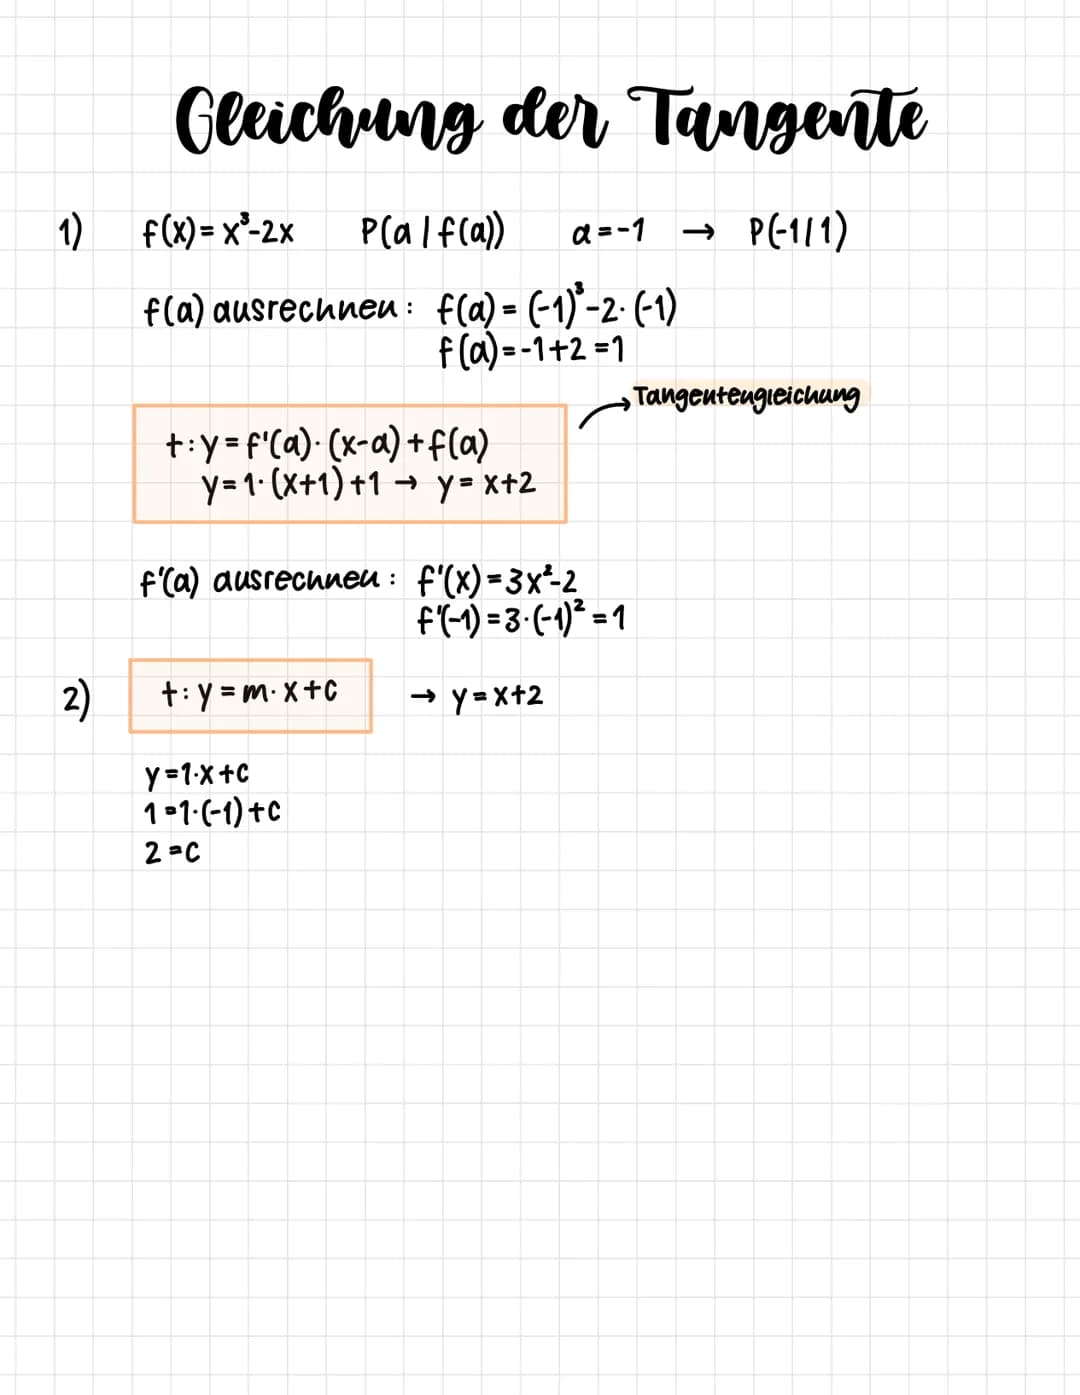 Gleichung der Tangente
1) f(x) = x³-2x P(a | f(a)) a = -1 → P(-1/1)
f(a) ausrechnen: f(a) = (-1)³-2·(-1)
f(a) = -1+2 = 1
Tangentengleichung
t: y = f'(a)·(x-a)+f(a)
y = 1·(x+1)+1 → y = x+2
f'(a) ausrechnen: f'(x) = 3x²-2
f'(-1) = 3·(-1)² = 1
2) t: y = m·x+c → y = x+2
y = 1·x+c
1 = 1·(-1)+c
2 = c